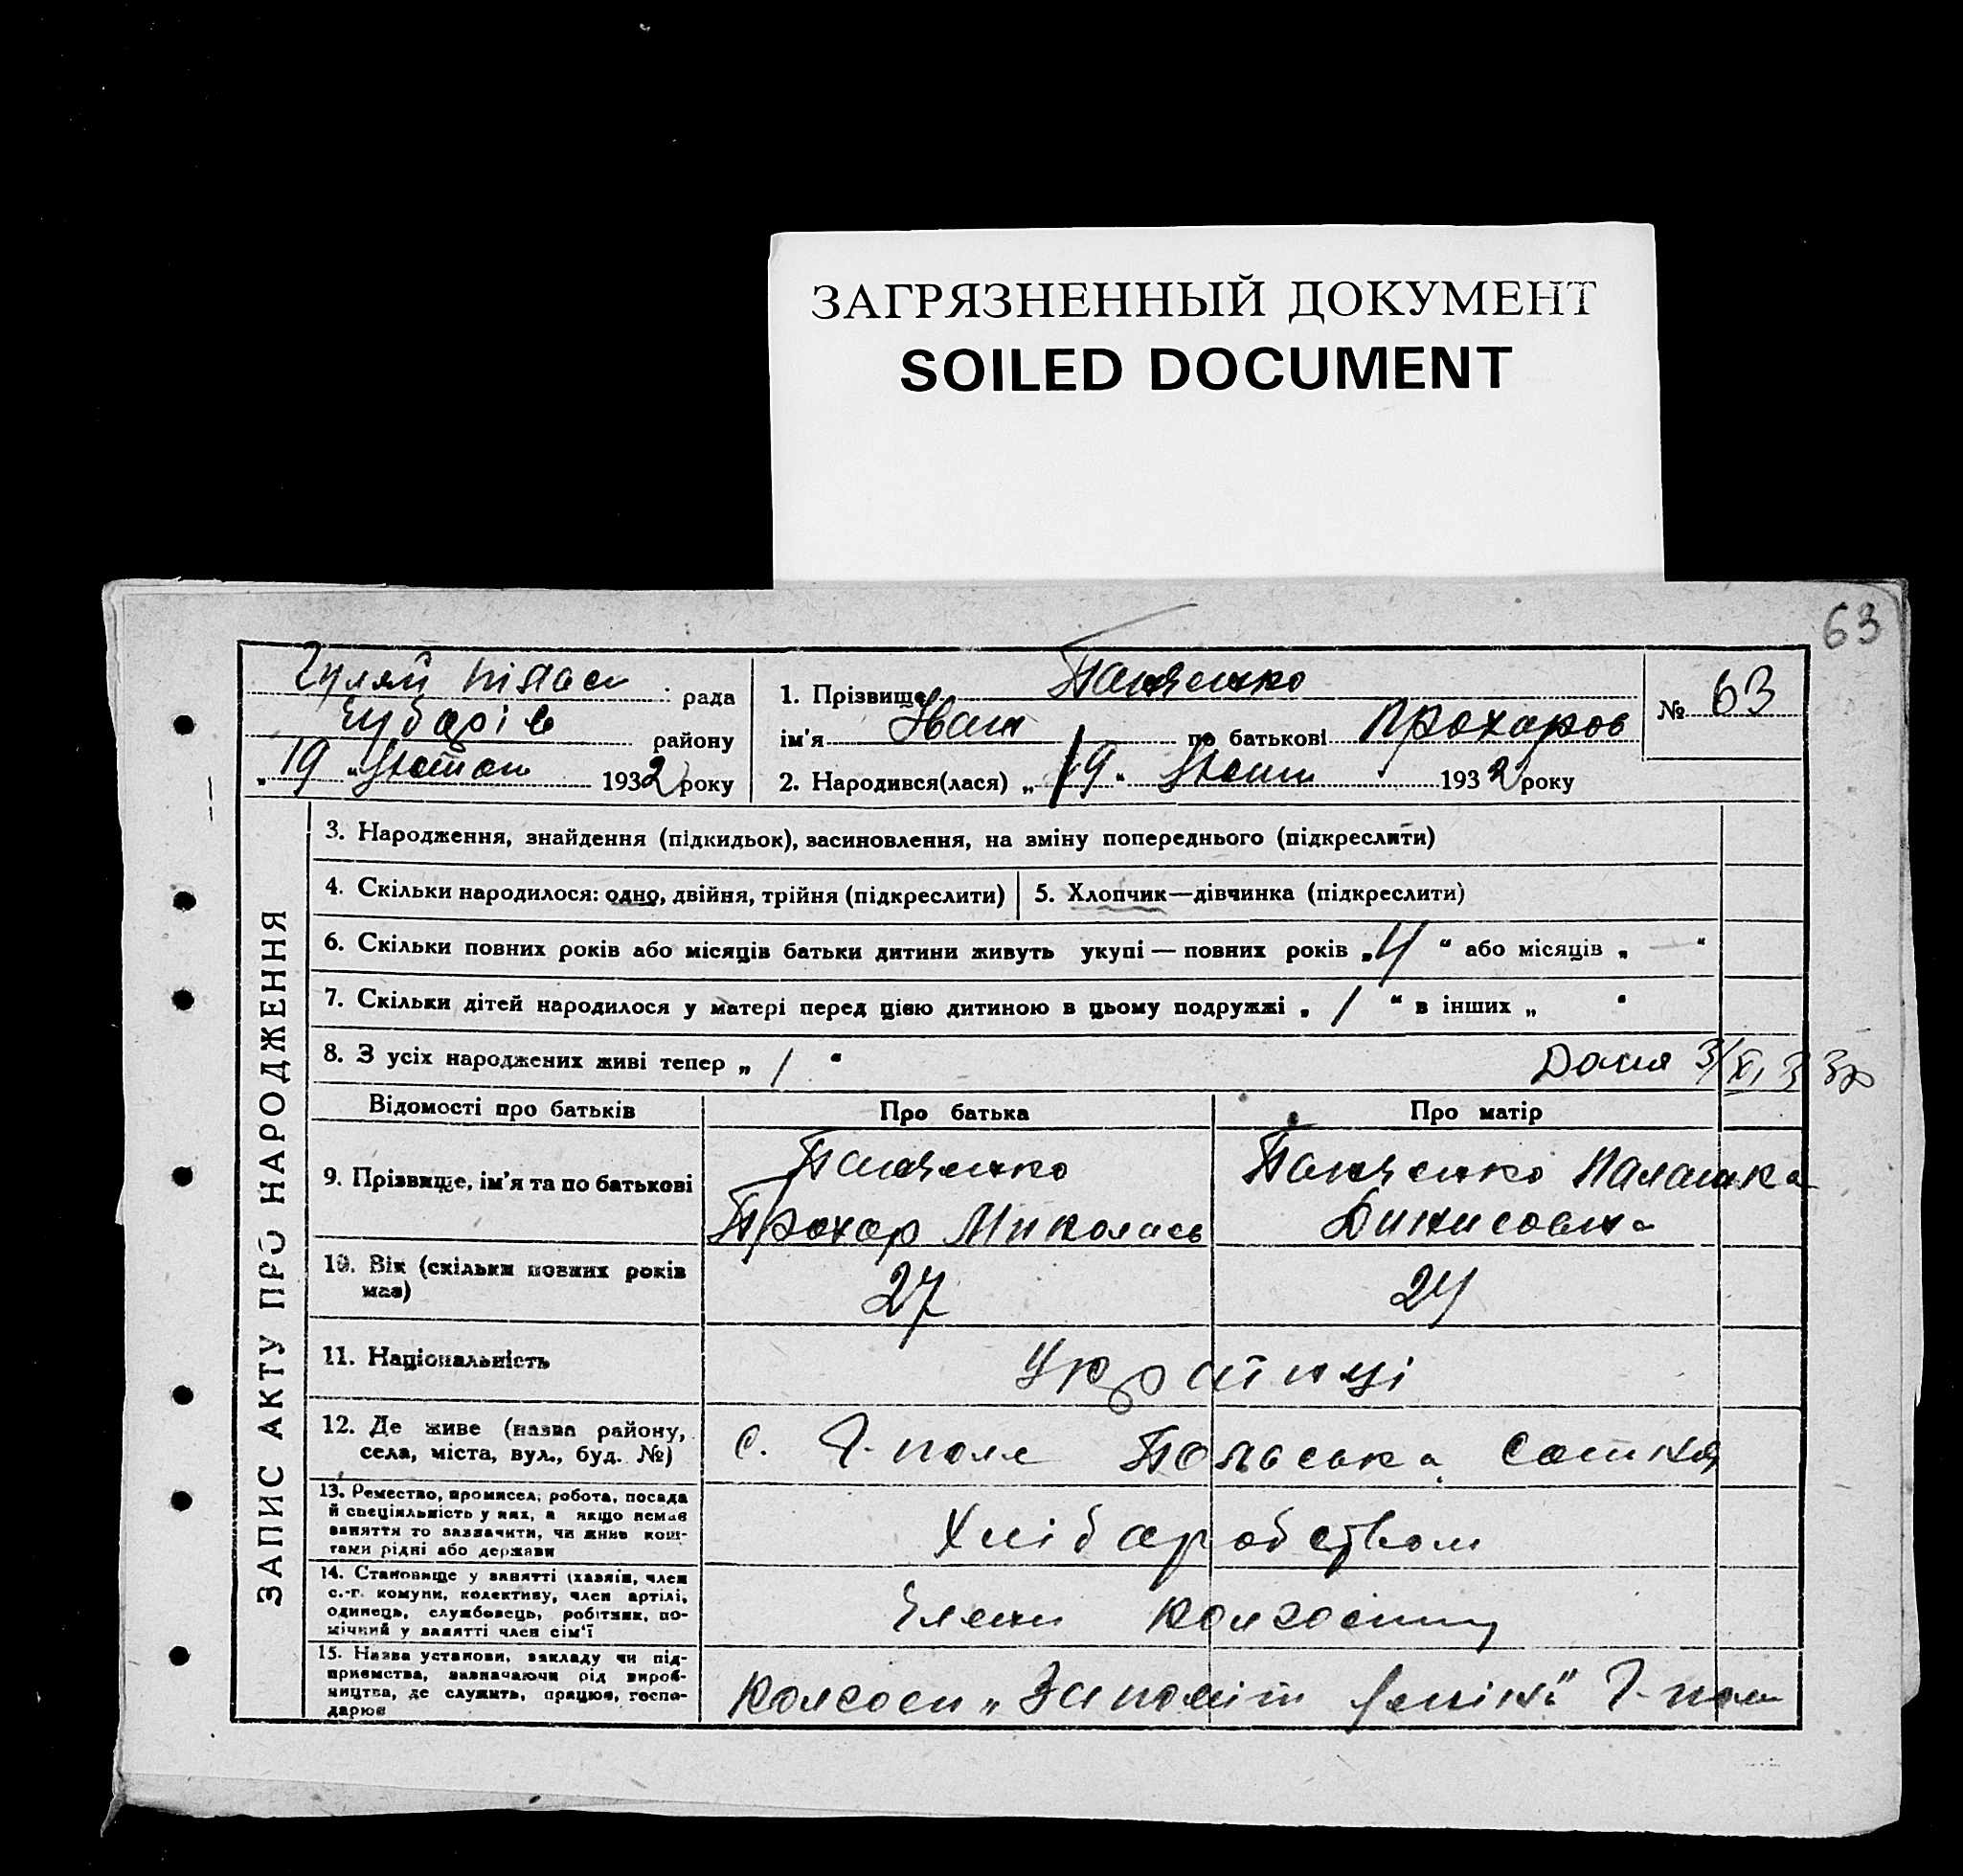 ЗАГРЯЗНЕННЫЙ ДОКУМЕНТ
SOILED DOCUMENT
63
Гуляй рада
Чубарів району
„19“ 1932 року
1. Прізвище Панченко
ім'я Іван по батькові Прохаров
№ 63
2. Народився(лася) „19“ 1932 року
ЗАПИС АКТУ ПРО НАРОДЖЕННЯ
3. Народження, знайдення (підкидьок), засиновлення, на зміну попереднього (підкреслити)
4. Скільки народилося: одно, двійня, трійня (підкреслити)
5. Хлопчик—дівчинка (підкреслити)
6. Скільки повних років або місяців батьки дитини живуть укупі — повних років „4“ або місяців „—“
7. Скільки дітей народилося у матері перед цією дитиною в цьому подружжі „1“ в інших „ “
8. З усіх народжених живі тепер „1“
3/XI 33р
Відомості про батьків
Про батька
Про матір
9. Прізвище, ім'я та по батькові
Панченко
Прохар Миколаєв
Панченко Палашка
Динисовна
10. Вік (скільки повних років
має)
27
24
11. Національність
Українці
12. Де живе (назва району,
села, міста, вул., буд. №)
с. Г-поле Польська Сотня
13. Ремество, промисел, робота, посада
й спеціяльність у них, а якщо немає
заняття то зазначити, чи живе кош-
тами рідні або держави
Хлібаробством
14. Становище у занятті (хазяїн, член
с.-г. комуни, колективу, член артілі,
одинець, службовець, робітник, по-
мічний у занятті член сім'ї
Члени колгоспу
15. Назва установи, закладу чи під-
приємства, зазначаючи рід вироб-
ництва, де служить, працює, госпо-
дарює
Колгосп „Заповіт Леніна“ Г-поле